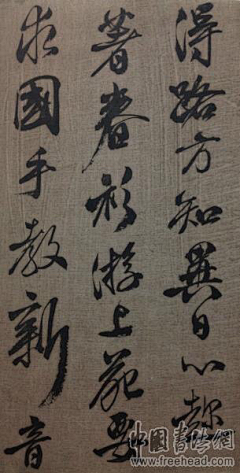 得路方知異日心趁
著春衫游上苑要
求國手教新音
中国书法网
www.freehead.com